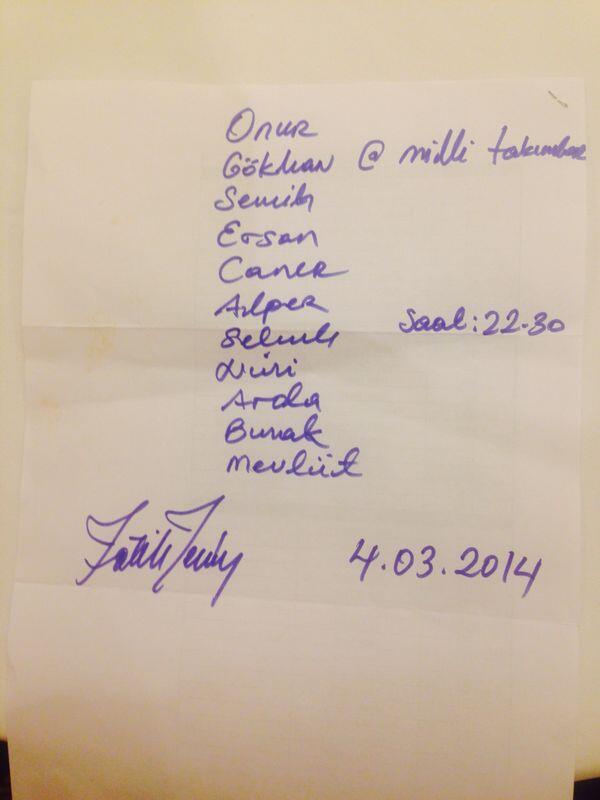 Onur
Gökhan @ milli takımlar
Semih
Ersan
Caner
Alper
Selçuk Saat: 22.30
Nuri
Arda
Burak
Mevlüt
Fatih Terim 4.03.2014